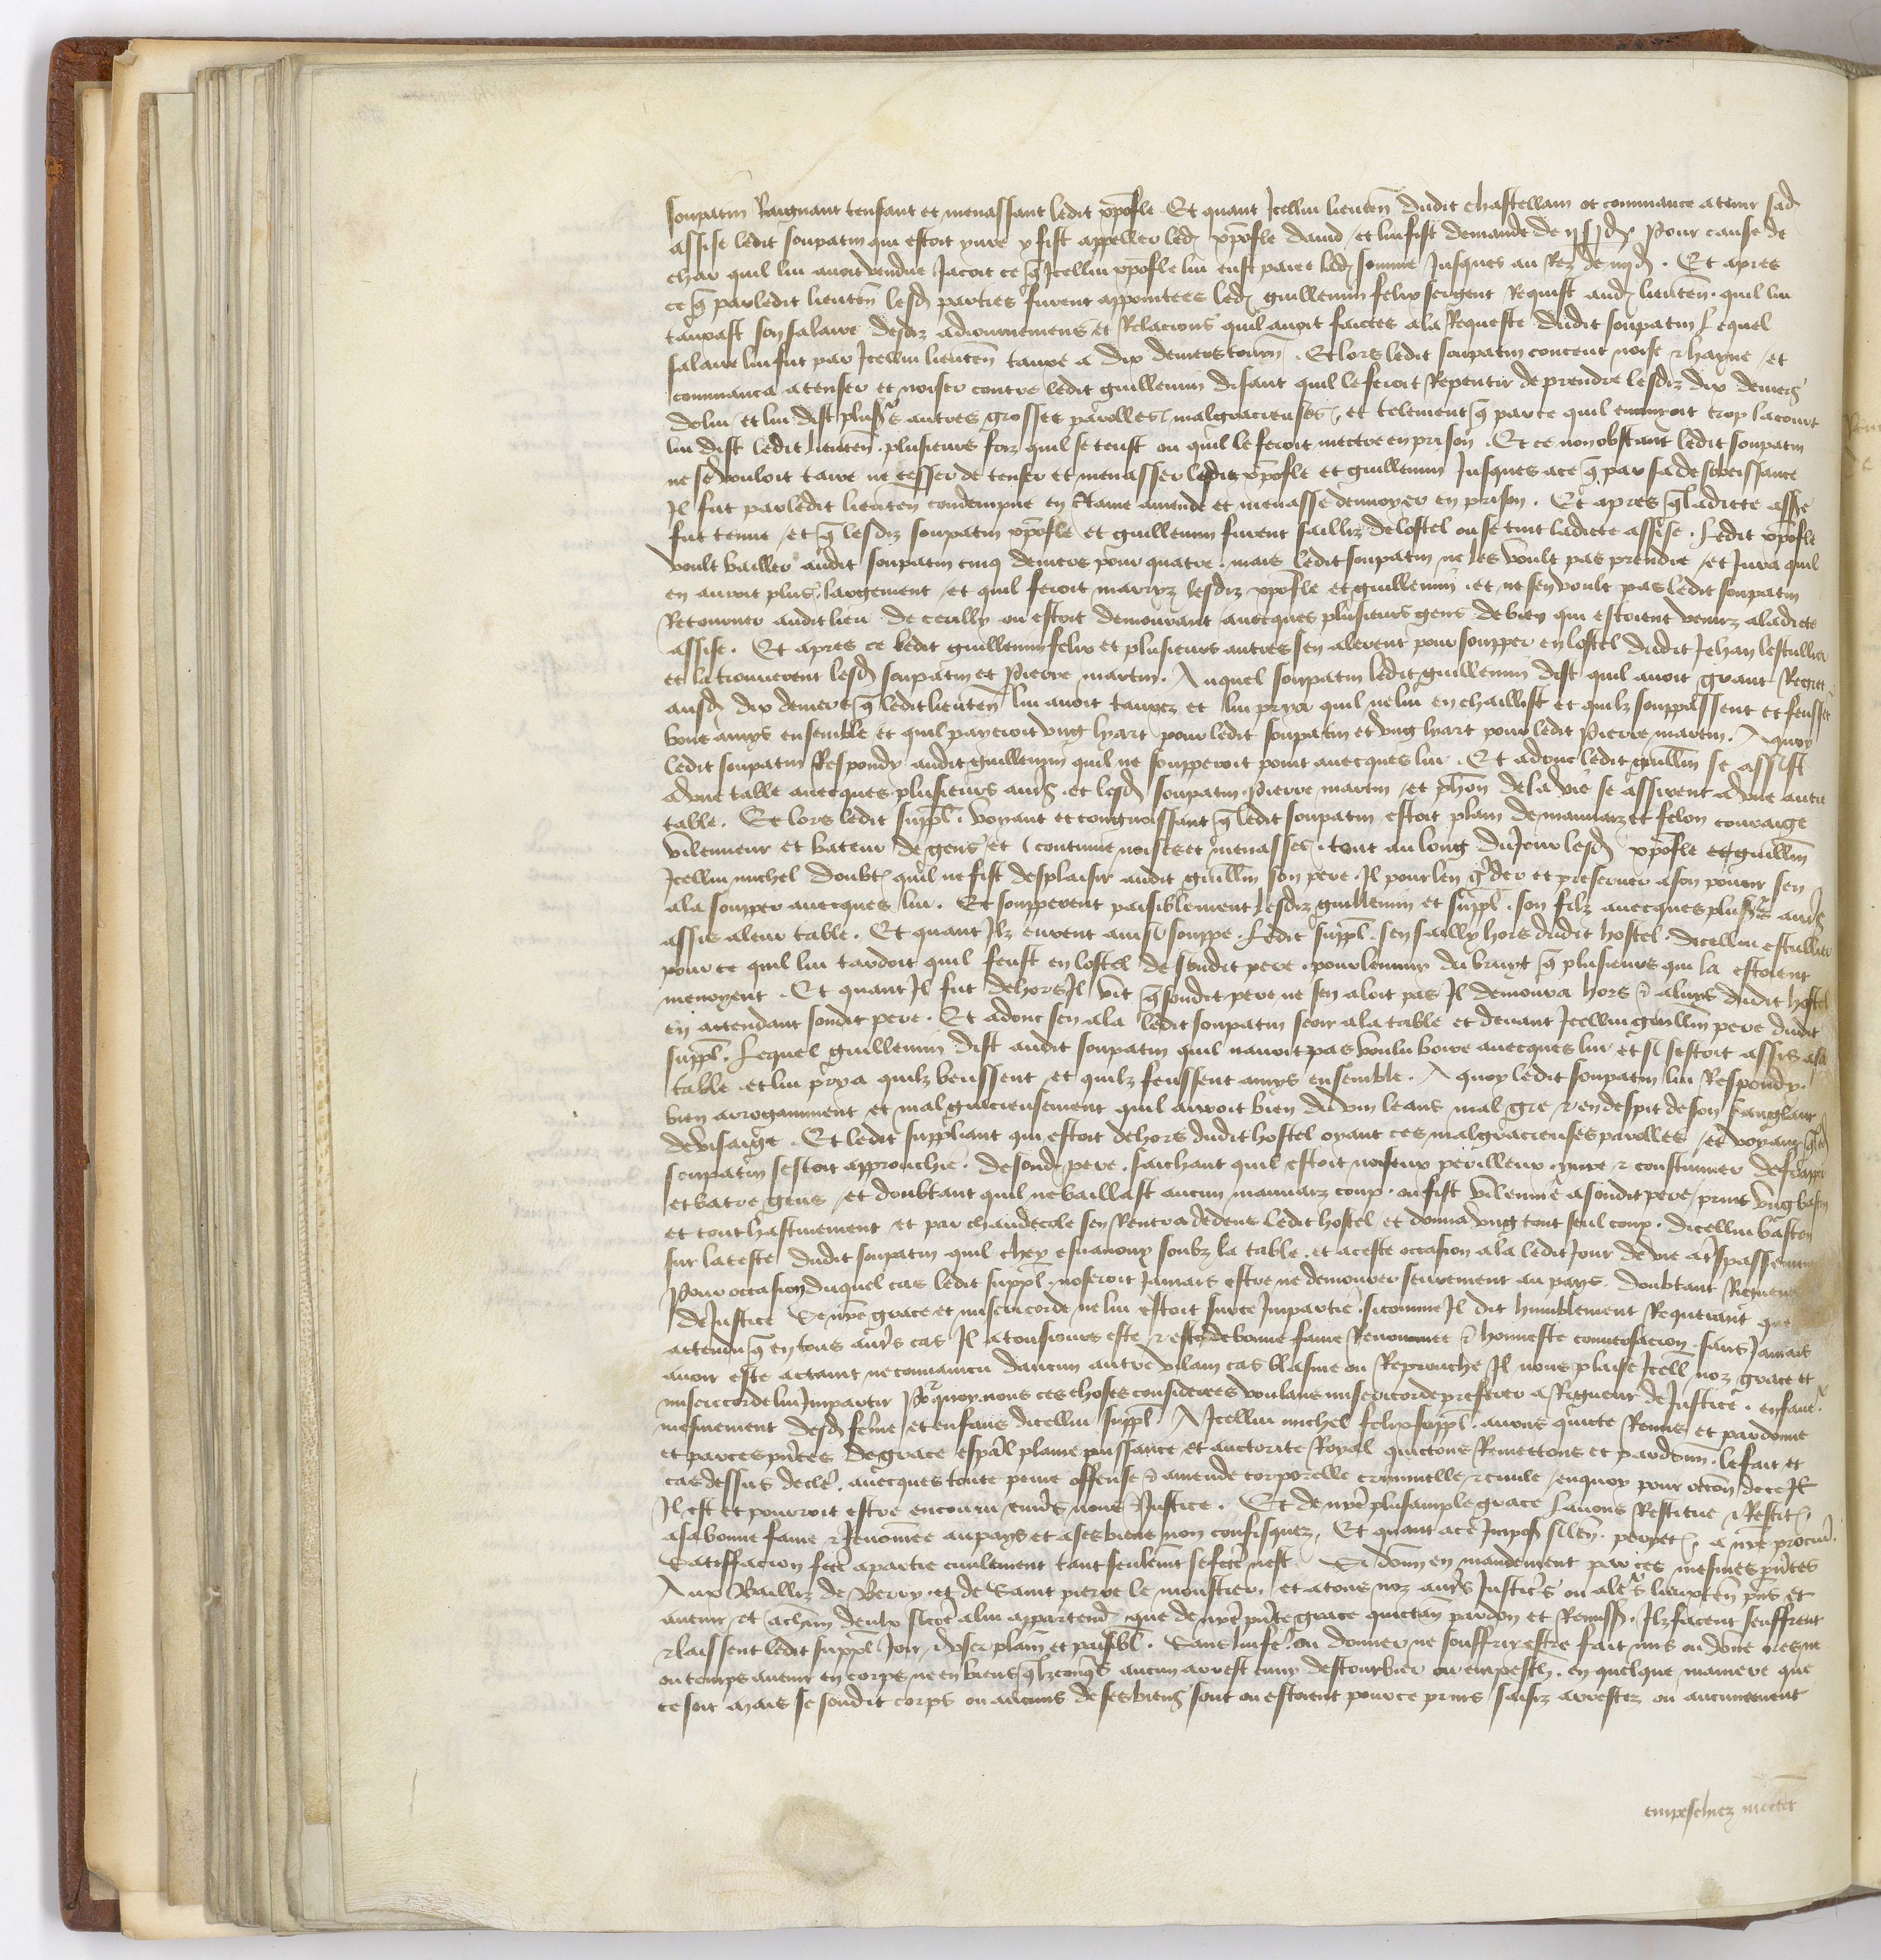 soupatin Raignant tensant et menassant ledit xpofle Et quant Icellui lieuten dudit chastellain ot commance a tenir sad
assise ledit soupatin qui estoit yvre y fist appeller led xpofle david et lui fist demande de pour cause de
char quil lui avoit vendue Jacoit ce q Icellui xpofle lui eust paiee lad somme Jusques au Rez de iiij d . Et apres
ce q par ledit lieuten lesd parties furent appointees led guillemin felix sergent Requist aud lieuten quil lui
tauxast son salaire desdiz adiournemens et Relacions quil avoit faictes a la Requeste dudit soupatin Lequel
salaire lui fut par Icellui lieuten tauxe a dix deniers tourn . Et lors ledit soupatin conceut noise et hayne et
commanca a tenser et noiser contre ledit guillemin disant quil le feroit Repentir de prendre lesdiz dix deniers
de lui et lui dist plusrs autres grosses parolles malgracieuses et telement q parce quil ennuyoit trop la court
lui dist ledit lieuten plusieurs foiz quil se teust ou quil le feroit mectre en prison . Et ce non obstant ledit soupatin
ne se vouloit taire ne cesser de tenser et menasser lesdiz xpofle et guillemin Jusques a ce q par sa desobeissance
Il fut par ledit lieuten condempne en amende et menasse denvoyer en prison . Et apres q ladicte assise
fut tenue et q lesdiz soupatin xpofle et guillemin furent sailliz de lostel ou se tint ladicte assise . Ledit xpofle
voult bailler audit soupatin cinq deniers pour quatre . mais ledit soupatin ne les voult pas prendre et Jura quil
en auroit plus largement et quil feroit marryz lesdiz xpofle et guillemin . et ne sen voult pas ledit soupatin
Retourner audit lieu de cerilly ou estoit demourant avecques plusieurs gens de bien qui estoient venuz a ladicte
assise . Et apres ce ledit guillemin felix et plusieurs autres sen alerent pour soupper en lostel dudit Jehan lestullier
et la trouverent lesd soupatin et Pierre martin . Auquel soupatin ledit guillemin dist quil avoit grant Regret
ausd dix deniers q ledit lieuten lui avoit tauxez et lui prya quil ne lui en chaillist et quilz souppassent et feussent
bons amys ensemble et quil payeroit ung lyart pour ledit soupatin et ung lyart pour ledit Pierre martin . A quoy
ledit soupatin Respondy audit guillemin quil ne soupperoit point avecques lui . Et adonc ledit guillm se assist
a une table avecques plusieurs aures et lesd soupatin Pierre martin et phon de la vie se assirent a une autre
table . Et lors ledit suppl voyant et congnoissant q ledit soupatin estoit plain de mauvaiz et felon couraige
villenneur et bateur de gens et continue noises et menasses tout au long du Jour lesd xpofle et guillm
Icellui michel doubt quil ne fist desplaisir audit guillm son pere . Il pour len gder et preserver a son povoir sen
ala soupper avecques lui . Et soupperent paisiblement lesdiz guillemin et suppl son filz avecques plusrs aurs
assis a leur table . Et quant Ilz eurent ainsi souppe . Ledit suppl sen sailly hors dudit hostel dicellui estullier
pour ce quil lui tardoit quil feust en lostel de sondit pere pour lennuy du bruyt q plusieurs qui la estoient
menoyent . Et quant Il fut dehors Il vit q sondit pere ne sen aloit pas Il demoura hors dudit hostel
en attendant sondit pere . Et adonc sen ala ledit soupatin seoir a la table et devant Icellui guillm pere dudit
suppl . Lequel guillemin dist audit soupatin quil navoit pas voulu boire avecques lui et si sestoit assis a sa
table . et lui prya quilz beussent et quilz feussent amys ensemble . A quoy ledit soupatin lui Respondy
bien arrogamment et malgracieusement quil auroit bien du vin leans mal gre et en despit de son sanglant
de visaige . Et ledit suppliant qui estoit dehors dudit hostel oyant ces malgracieuses parolles et voyant q led
soupatin sestoit approuchie de sond pere . saichant quil estoit noiseux perilleux yvre et coustumier de frapper
et batre gens et doubtant quil ne baillast aucun mauvaiz coup ou fist villennie a sondit pere print ung baston
et tout hastivement et par chaudecole sen Rentra dedens ledit hostel et donna ung tout seul coup dicellui baston
sur la teste dudit soupatin quil chey esvanouy soubz la table . et a ceste occasion ala ledit Jour de vie a trespassement
Pour occasion duquel cas ledit suppl noseroit Jamais estre ne demourer seurement au pays doubtant Rigueur
de Justice Se nre grace et misericorde ne lui estoit sur ce Impartie sicomme Il dit humblement Requerant que
attendu q en tous autrs cas Il a tousiours este et est de bonne fame Renommee et honneste conversacion . sans Jamais
avoir este actaint ne convaincu daucun autre vilain cas blasme ou Reprouche Il nous plaise Icell noz grace et
misericorde lui Impartir Pourquoy nous ces choses considerees voulans misericorde preferer a Rigueur de Justice . en fave
mesmement desd feme et enfans dicellui suppl A Icellui michel felix suppl avons quicte Remis et pardonne
et par ces pntes de grace espal plaine puissance et auctorite Royal quictons Remettons et pardonn le fait et
cas dessus declr avecques toute peine offense et amende corporelle criminelle et civile en quoy pour occon de ce Il
Il est et pourroit estre encouru envrs nous et Justice . Et de nre plus ample grace Lavons Restitue et Restit
a sa bonne fame et Renomee au pays et a ses biens non confisquez . Et quant a ce Imposs silen perpet a nre procur
Satisfacion fcte a partie civilement tant seulemt se fcte nest Si donn en mandement par ces mesmes pntes
Aux Bailliz de Berry et de Saint pierre le moustier . et a tous noz aurs Justicrs ou a leurs lieuxten pns et
avenir et a chun deulx sicoe a lui appartend que de nre pnte grace quictan pardon et Remiss Ilz facent seuffrent
et laissent ledit suppl Joir et user plain et paisibl . Sans lui fe ou donner ne souffrir estre fait mis ou done ores ne
ou temps avenir en corps ne en biens qlzconqs aucun arrest ennuy destourbier ou empesch en quelque maniere que
ce soit mais se sondit corps ou aucuns de ses biens sont ou estoient pour ce prins saisiz arrestez ou aucunement
empeschiez mectet